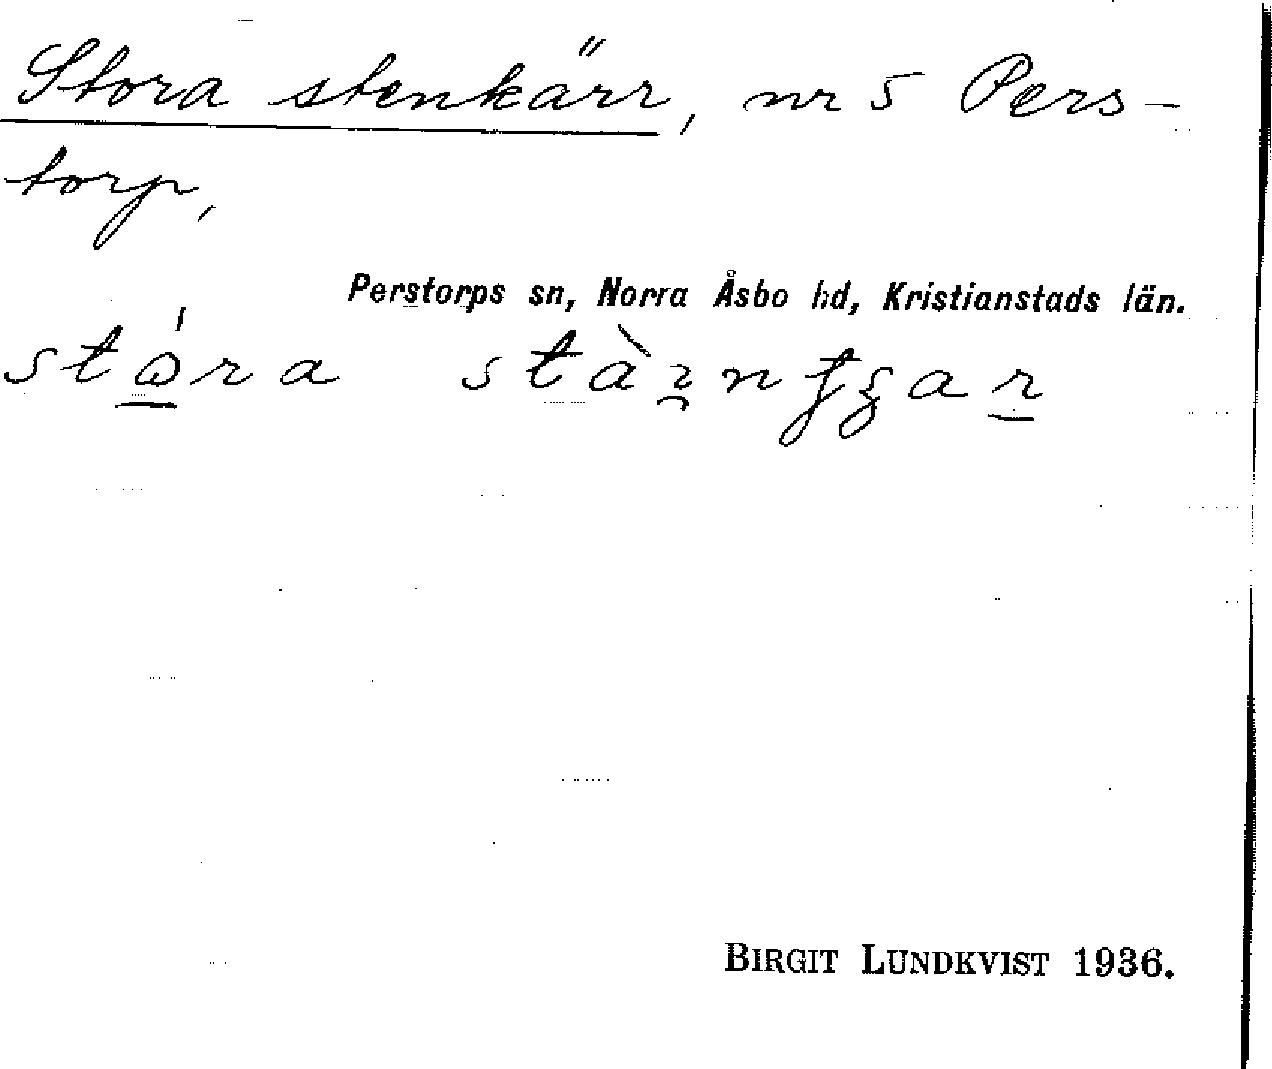 Stora stenkärr, nr 5 Pers-
torp,
Perstorps sn, Norra Åsbo hd, Kristianstads län.
BIRGIT LUNDKVIST 1936.